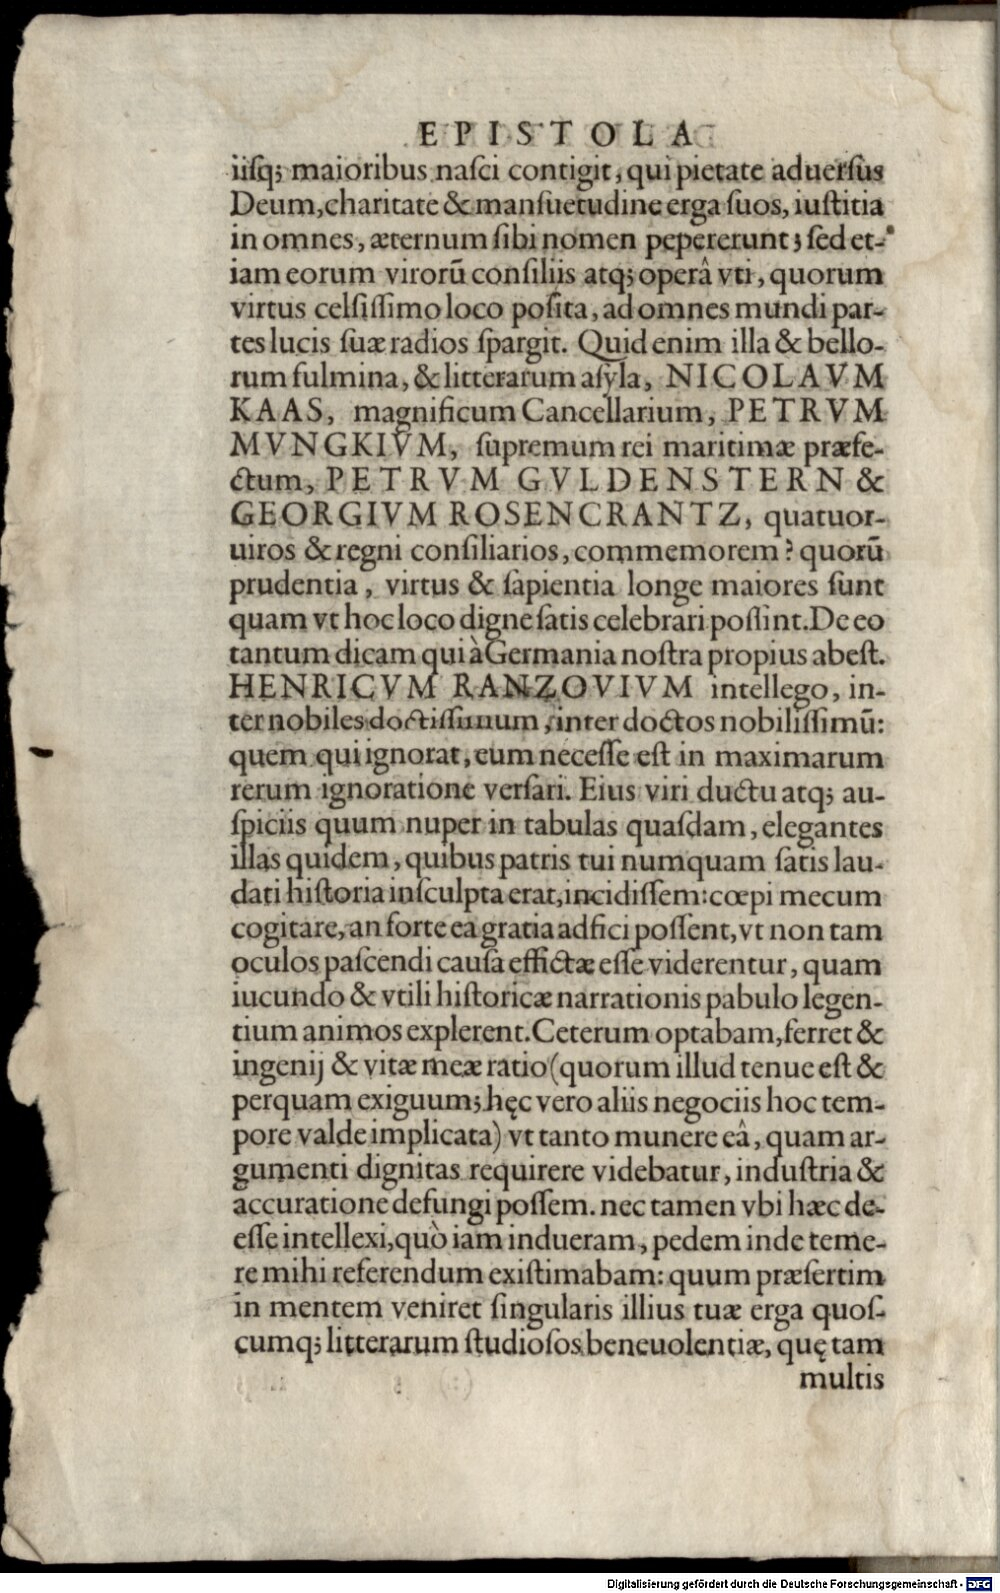 EPISTOLA
iisq; maioribus nasci contigit, qui pietate aduersùs
Deum, charitate & mansuetudine erga suos, iustitia
in omnes, æternum sibi nomen pepererunt; sed et-
iam eorum virorū consiliis atq; operâ vti, quorum
virtus celsissimo loco posita, ad omnes mundi par-
tes lucis suæ radios spargit. Quid enim illa & bello-
rum fulmina, & litterarum asyla, NICOLAVM
KAAS, magnificum Cancellarium, PETRVM
MVNGKIVM, supremum rei maritimæ præfe-
ctum, PETRVM GVLDENSTERN &
GEORGIVM ROSENCRANTZ, quatuor-
uiros & regni consiliarios, commemorem? quorū
prudentia, virtus & sapientia longe maiores sunt
quam vt hoc loco digne satis celebrari possint. De eo
tantum dicam qui à Germania nostra propius abest.
HENRICVM RANZOVIVM intellego, in-
ter nobiles doctissimum, inter doctos nobilissimū:
quem qui ignorat, eum necesse est in maximarum
rerum ignoratione versari. Eius viri ductu atq; au-
spiciis quum nuper in tabulas quasdam, elegantes
illas quidem, quibus patris tui numquam satis lau-
dati historia insculpta erat, incidissem: cœpi mecum
cogitare, an forte ea gratia adfici possent, vt non tam
oculos pascendi causa effictæ esse viderentur, quam
iucundo & vtili historicæ narrationis pabulo legen-
tium animos explerent. Ceterum optabam, ferret &
ingenij & vitæ meæ ratio (quorum illud tenue est &
perquam exiguum; hęc vero aliis negociis hoc tem-
pore valde implicata) vt tanto munere eâ, quam ar-
gumenti dignitas requirere videbatur, industria &
accuratione defungi possem. nec tamen vbi hæc de-
esse intellexi, quò iam indueram, pedem inde teme-
re mihi referendum existimabam: quum præsertim
in mentem veniret singularis illius tuæ erga quos-
cumq; litterarum studiosos beneuolentiæ, quę tam
multis
Digitalisierung gefördert durch die Deutsche Forschungsgemeinschaft - DFG